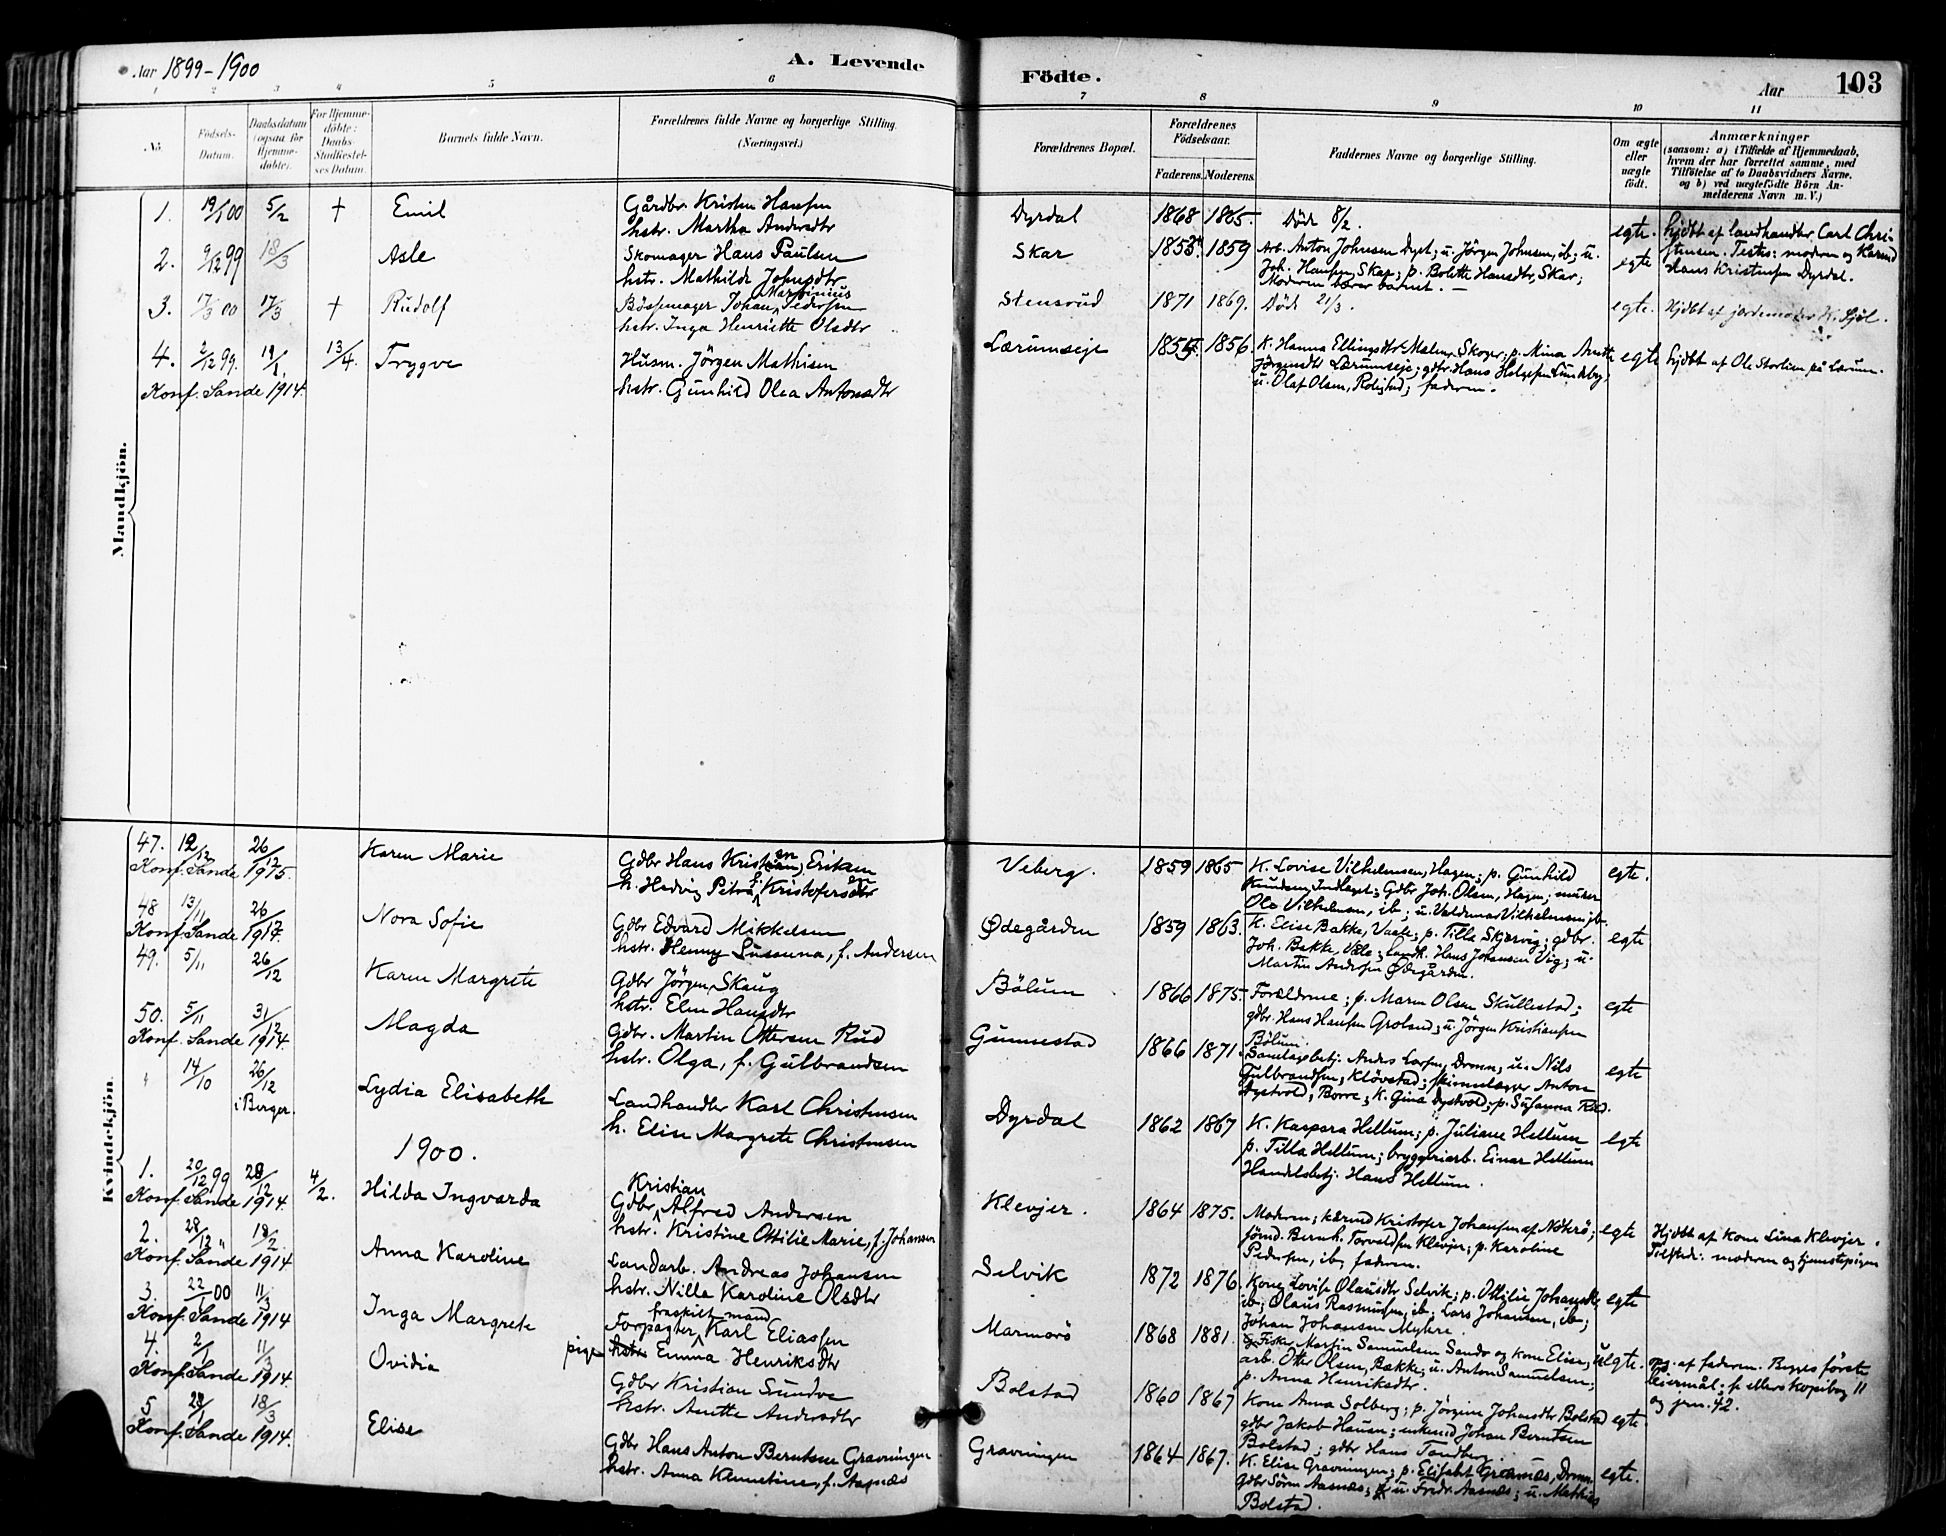 Aar 1899-1900
A. Levende
Födte.
Aar
103
1 2 3 4 5 6 7 8 9 10 11
No.
Födsels-Datum.
Daabsdatum (ogsaa for Hjemmedöbte).
For Hjemmedöbte: Daabs-Stadfestelses Datum.
Barnets fulde Navn.
Forældrenes fulde Navne og borgerlige Stilling. (Næringsvei.)
Forældrenes Bopæl.
Forældrenes Födselsaar.
Faderens. Moderens.
Faddernes Navne og borgerlige Stilling.
Om ægte eller uægte födt.
Anmærkninger
(saasom: a) i Tilfælde af Hjemmedaab, hvem der har forrettet samme, med Tilföielse af to Daabsvidners Navne, og b) ved uægtefödte Börn Anmelderens Navn m. V.)
Mandkjön.
1. 19/1 00 5/2 † Emil
Gårdbr. Kristen Hansen
hstr. Martha Andersdtr
Dyrdal 1868 1865. Död 8/2. egte.
hjdbt af landhandler Carl Christensen. Testes: moderen og
Hans Kristensen Dyrdal.
2. 9/12 99 18/3 Asle
Skomager Hans Paulsen
hstr. Mathilde Johnsdtr
Skar 1859
Arb. Anton Johnsen Dyst; u. Jörgen Johnsen, ib; u.
Joh. Hansen, Skar; p. Bolette Hansdtr, Skar;
Moderen bærer barnet. —
egte
3. 17/3 00 17/3 † Rudolf
Bössemager Johan Martinius Pedersen
hstr. Inga Henriette Olsdtr
Stensrud 1871 1869. Död 21/3. egte. Hjdbt af jordemoder
4. 2/12 99. 19/1. 13/4. Trygve
Husm. Jörgen Mathisen
hstr. Gunhild Olea Antonsdtr
Konf. Sande 1914.
Lærumseje 1856
K. Hanna Ellingsdtr Skoger; p. Mina Anette
Jörgensdtr Lærumseje; gdbr. Hans Helgesen Lundeby,
u. Olaf Olsen, Rolighed; faderen.
egte hjdbt af Ole Stortien på Lærum.
Kvindekjön.
47. 12/12 26/12 Karen Marie
Konf. Sande 1915.
Gdbr Hans Kristian, Eriksen
h. Hedvig Petra Kristofersdtr
Veberg. 1859 1865
K. Lovise Vilhelmsen, Hagen; p. Gunhild
Knudsen, Indlaget; Gdbr Joh. Olsen, Hagen; murer
Ole Vilhelmsen, ib; u. Valdemar Vilhelmsen, ib.
egte.
48 13/11 26/12 Nora Sofie
Konf. Sande 1914.
Gdbr Edvard Mikkelsen
hstr. Henny Sussuna, f. Andersen
Ødegården 1859 1863.
K. Elise Bakke, Vaale; p. Tilla Skjærvig; gdbr.
Joh. Bakke, Våle; Landh. Hans Johansen Vig; u.
Martin Andersen Ødegården.
egte
49. 5/11 26/12 Karen Margrete
Gdbr Jörgen Skaug
hstr. Elen Hansdtr
Bölum 1866 1875.
Forældrene; p. Maren Olsen Skullestad;
gdbr. Hans Hansen Groland; u. Jörgen Kristiansen
Bölum.
egte
50. 5/11 31/12 Magda
Konf. Sande 1914.
Gdbr. Martin Ottersen Rud
hstr. Olga, f. Gulbrandsen
Gunnestad 1866 1871.
Samlagsbetj. Anders Larsen, Dramn, u. Nils
Gulbrandsen, Klövstad; skinnlægger Anton
Dystvold, Borre; k. Gina Dystvold; p. Susanna Rud.
egte
" 14/10 26/12 i Berger. Lydia Elisabeth
Landhandler Karl Christensen
h. Elise Margrete Christensen
Dyrdal 1862 1867
K. Kaspara Hellum; p. Juliane Hellum
p. Tilla Hellum; bryggeriarb. Einar Hellum
Handelsbetj. Hans Hellum.
egte
1900.
1. 20/12 99 28/12 4/2. Hilda Ingvarda
Konf. Sande 1914.
Gdbr Kristian Alfred Andersen
hstr. Kristine Ottilie Marie, f. Johansen
Klevjer. 1864 1875.
Moderen; Kristofer Johansen af Nötterö;
Bernh. Torvaldsen Klevjer; p. Karoline
Pedersen, ib, faderen.
egte
Hjdbt af kone Lina Klevjer.
Tilsted: moderen og tjenestepigen
2. 28/12 " 18/2. Anna Karoline
Konf. Sande 1914
Landarb. Andreas Johansen
hstr. Nilla Karoline Olsdtr
Selvik 1872 1876.
Kone Lovise Olausdtr Selvik; p. Ottilie Johansdtr
ib; Olaus Rasmussen, ib, Lars Johansen, ib;
Johan Johansen Myhre.
egte
3. 22/1 00 11/3 Inga Margrete
Konf. Sande 1914
Forpagter fraskilt mand Karl Eliassen
pige Emma Henriksdtr
Marmorö 1868 1881.
Fisker Martin Samuelsen Sando og kone Elise;
arb. Otter Olsen, Bække; u. Anton Samuelsen;
p. Anna Henriksdtr.
uegte.
af faderen. Begges förste
leiermål; kopibog 11
og jrn. 42.
4. 2/1 11/3 Ovidia
Konf. Sande 1914.
Gdbr Kristian Sundve
hstr. Anette Andersdtr
Bolstad 1860 1867
Kone Anna Solberg; p. Jörgine Johansdtr Bolstad
gdbr Jakob Hansen; enkemd Johan Berntsen
Bolstad; gdbr Hans Tandberg.
egte.
5. 28/1 18/3 Elise
Konf. Sande 1914.
Gdbr Hans Anton Berntsen Gravningen
hstr. Anna Klemetine, f. Aasnæs
Gravningen 1864 1867.
K. Elise Gravningen; p. Elisabet Dramn.
Gdbr Sören Aasnæs; u. Fredr. Aasnæs; u. Mathias
Bolstad.
egte.